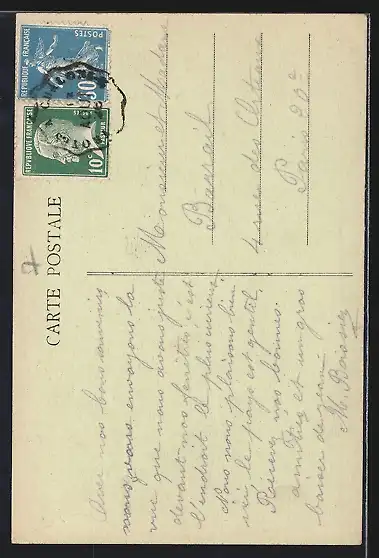 CARTE POSTALE
RÉPUBLIQUE FRANÇAISE
POSTES
30c
RÉPUBLIQUE FRANÇAISE
POSTES
10c
Avec nos bons souvenirs
nous vous envoyons la
vue que nous avons juste
devant nos fenêtres, c'est
l'endroit le plus curieux
Nous nous plaisons bien
ici le pays est gentil.
Recevez nos bonnes
amitiés et un gros
baiser de
M.
Monsieur et Madame
4 rue des
Paris 20e